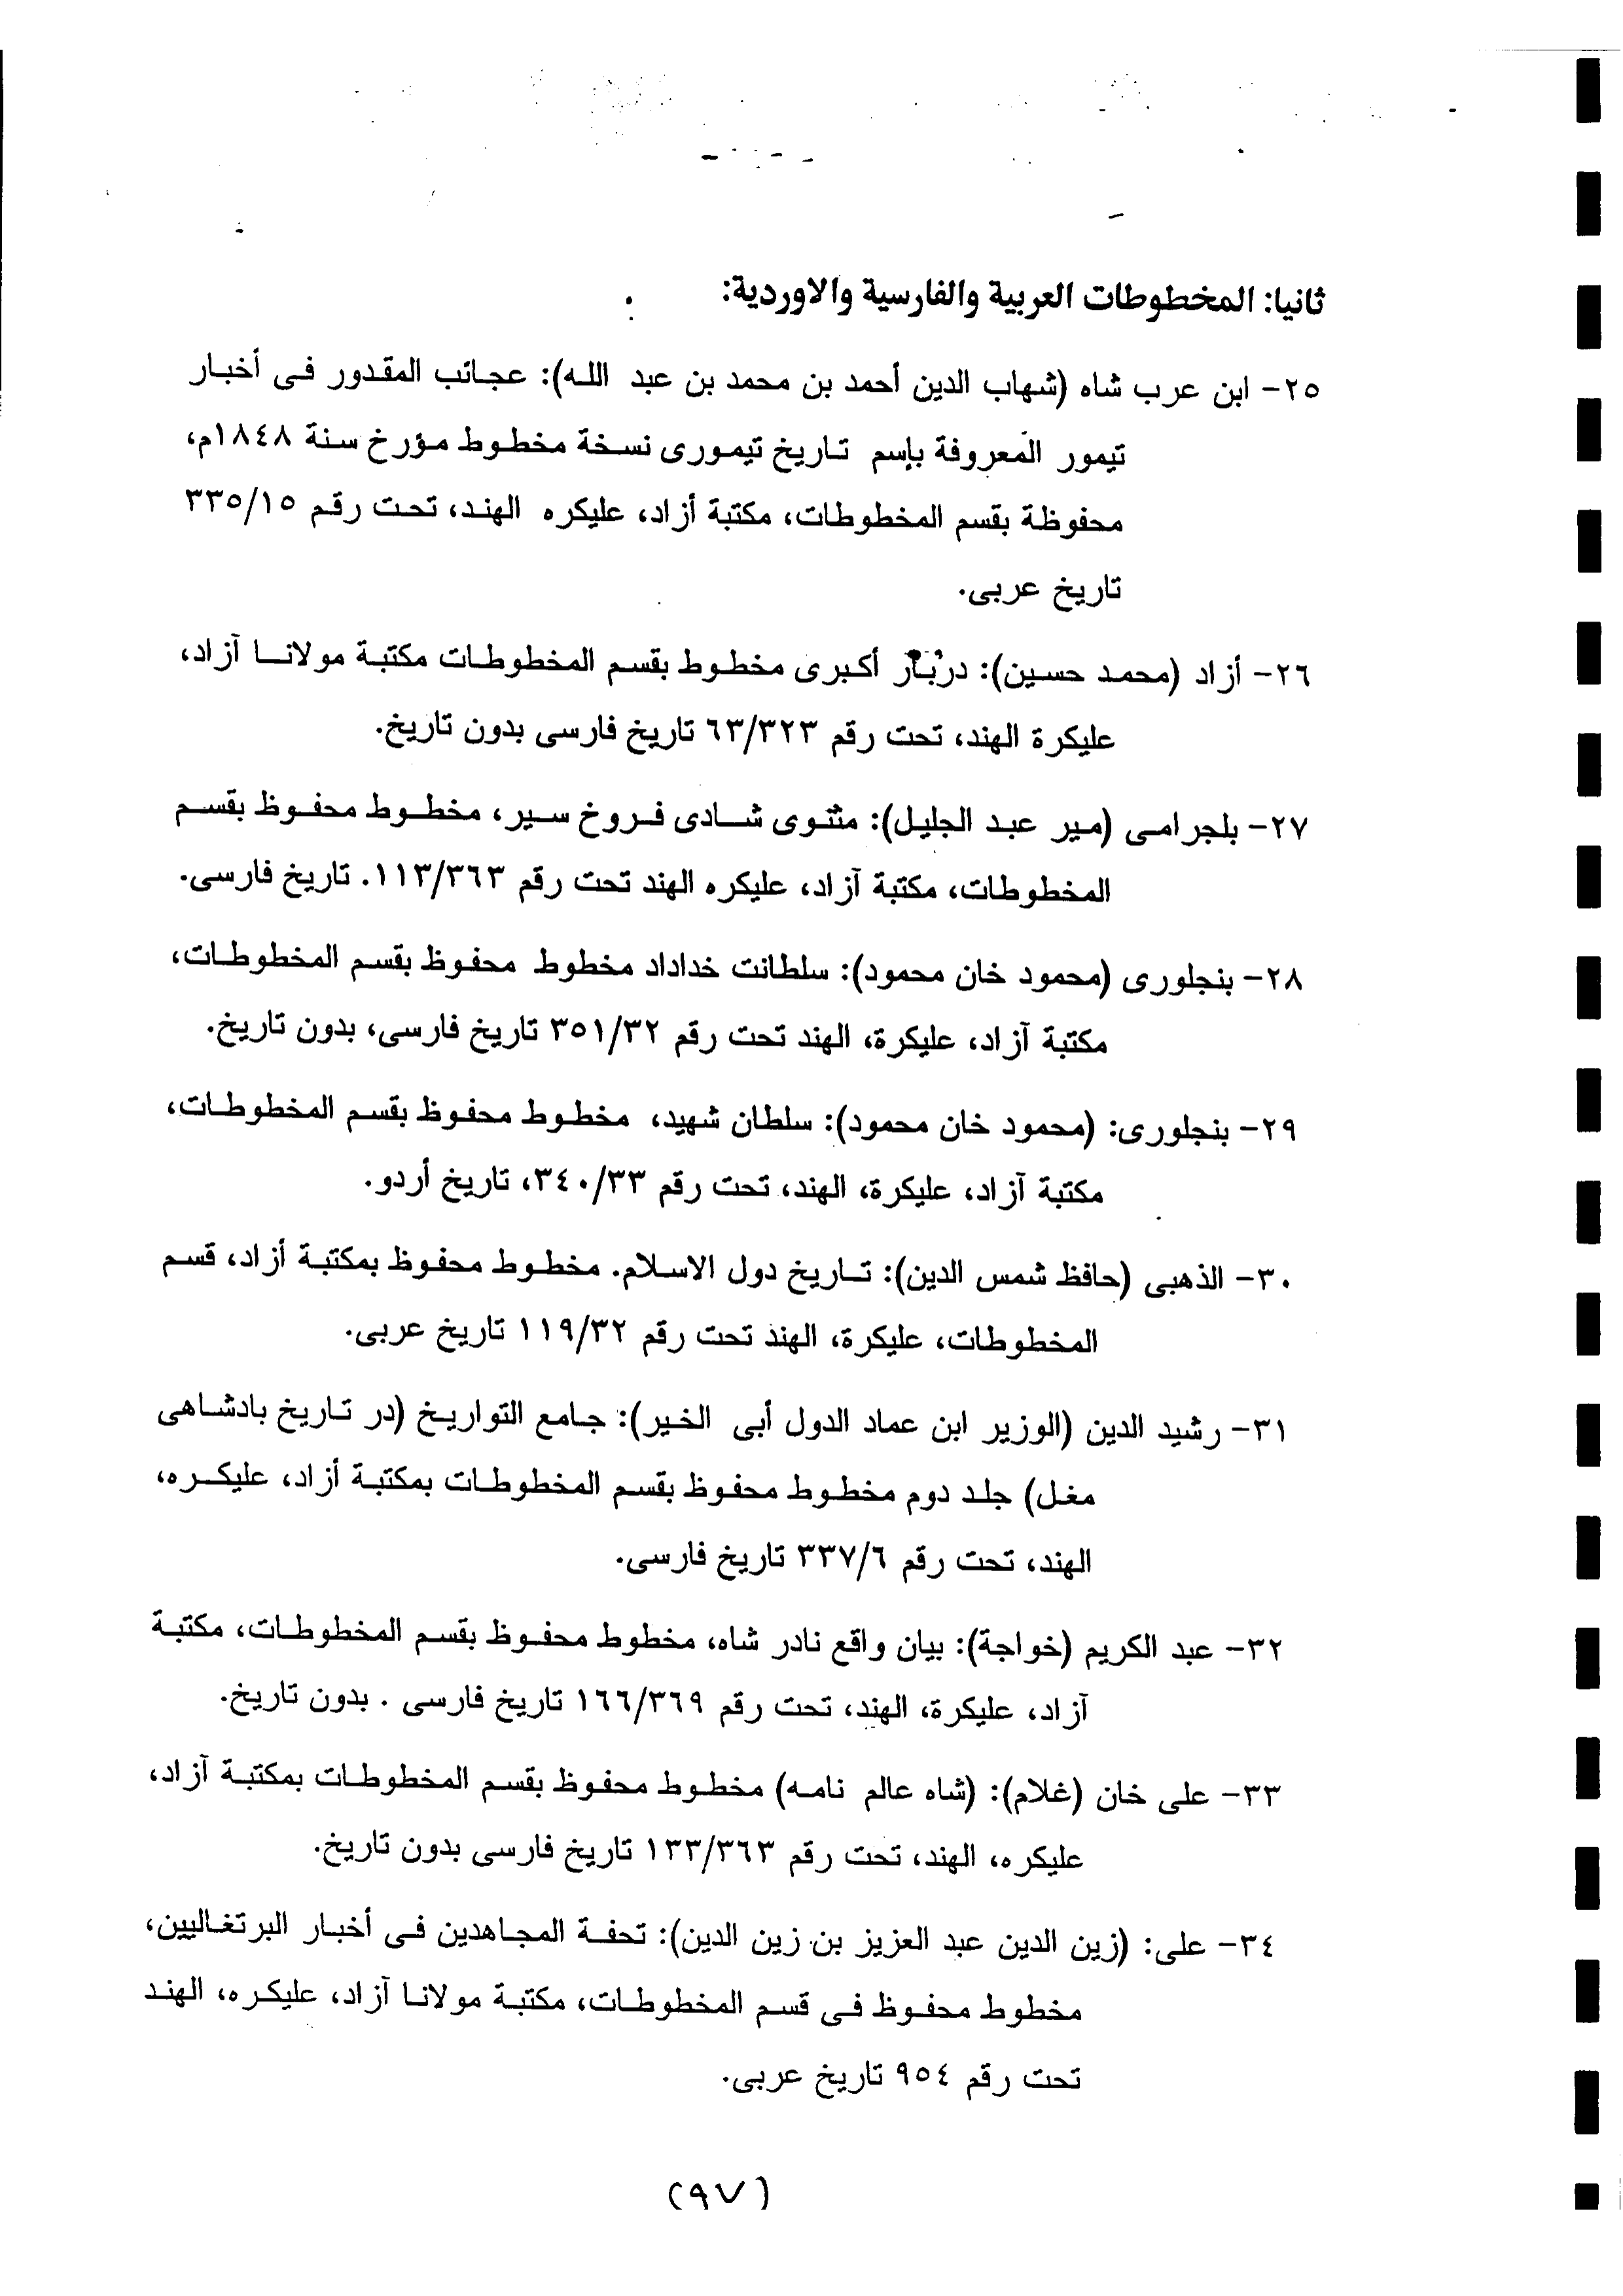 ثانيا: المخطوطات العربية والفارسية والاوردية:
٢٥- ابن عرب شاه (شهاب الدين أحمد بن محمد بن عبد الله): عجائب المقدور فى أخبار
تيمور المعروفة بإسم تاريخ تيمورى نسخة مخطوط مؤرخ سنة ١٨٤٨م،
محفوظة بقسم المخطوطات، مكتبة أزاد، عليكره الهند، تحت رقم ٣٣٥/١٥
تاريخ عربى.
٢٦- أزاد (محمد حسين): دربار أكبرى مخطوط بقسم المخطوطات مكتبة مولانا آزاد،
عليكرة الهند، تحت رقم ٦٣/٣٢٣ تاريخ فارسى بدون تاريخ.
٢٧- بلجرامى (مير عبد الجليل): مثنوى شادى فروخ سير، مخطوط محفوظ بقسم
المخطوطات، مكتبة آزاد، عليكره الهند تحت رقم ١١٣/٣٦٣. تاريخ فارسى.
٢٨- بنجلورى (محمود خان محمود): سلطانت خداداد مخطوط محفوظ بقسم المخطوطات،
مكتبة آزاد، عليكرة، الهند تحت رقم ٣٥١/٣٢ تاريخ فارسى، بدون تاريخ.
٢٩- بنجلورى: (محمود خان محمود): سلطان شهيد، مخطوط محفوظ بقسم المخطوطات،
مكتبة آزاد، عليكرة، الهند، تحت رقم ٣٤٠/٣٣، تاريخ أردو.
٣٠- الذهبى (حافظ شمس الدين): تاريخ دول الاسلام. مخطوط محفوظ بمكتبة أزاد، قسم
المخطوطات، عليكرة، الهند تحت رقم ١١٩/٣٢ تاريخ عربى.
٣١- رشيد الدين (الوزير ابن عماد الدول أبى الخير): جامع التواريخ (در تاريخ بادشاهى
مغل) جلد دوم مخطوط محفوظ بقسم المخطوطات بمكتبة أزاد، عليكره،
الهند، تحت رقم ٣٣٧/٦ تاريخ فارسى.
٣٢- عبد الكريم (خواجة): بيان واقع نادر شاه، مخطوط محفوظ بقسم المخطوطات، مكتبة
آزاد، عليكرة، الهند، تحت رقم ١٦٦/٣٦٩ تاريخ فارسى . بدون تاريخ.
٣٣- على خان (غلام): (شاه عالم نامه) مخطوط محفوظ بقسم المخطوطات بمكتبة آزاد،
عليكره، الهند، تحت رقم ١٣٣/٣٦٣ تاريخ فارسى بدون تاريخ.
٣٤- على: (زين الدين عبد العزيز بن زين الدين): تحفة المجاهدين فى أخبار البرتغاليين،
مخطوط محفوظ فى قسم المخطوطات، مكتبة مولانا آزاد، عليكره، الهند
تحت رقم ٩٥٤ تاريخ عربى.
(٩٧)